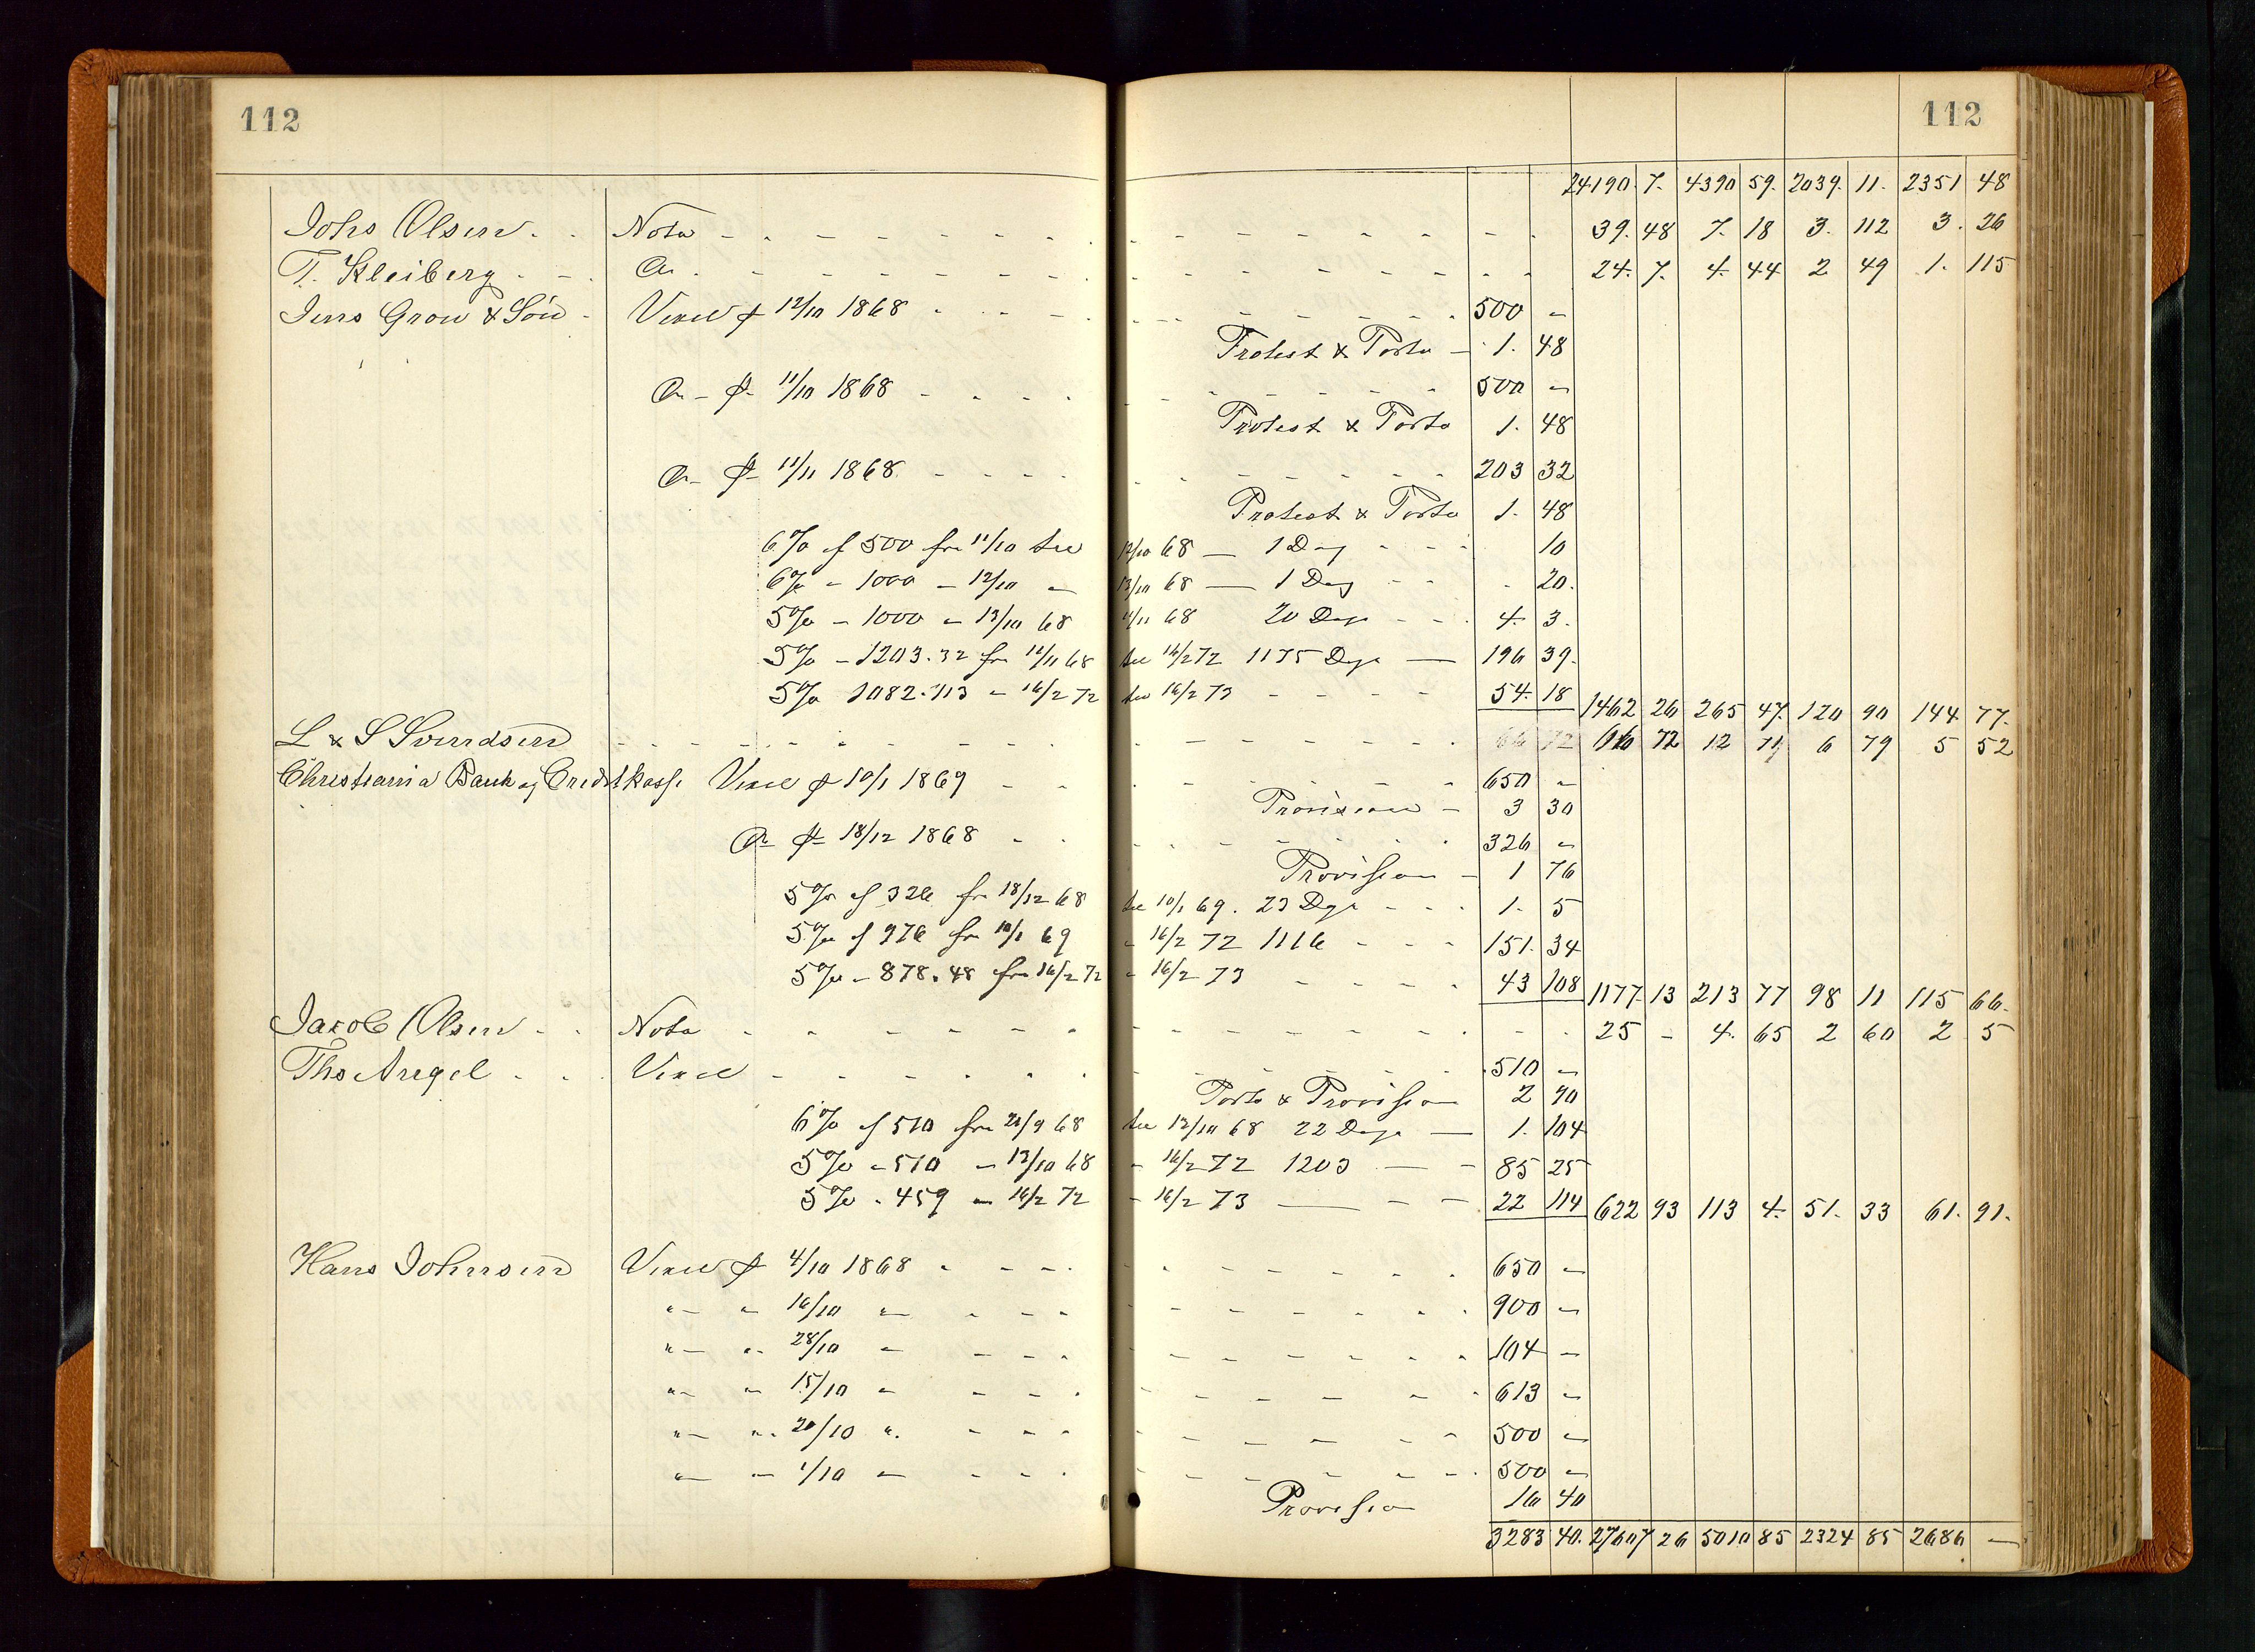 112 112
24190. 7. 4390 59. 2039. 11. 2351 48
Johs Olsen. Nota 39. 48 7. 18 3. 112 3. 26
T. Kleiberg Do 24. 7. 4. 44 2 49 1. 115
Jens Gron & Sön Vexel pr 12/10 1868 500 -
Protest & Porto - 1. 48
Do - pr 11/10 1868 500 -
Protest & Porto 1. 48
Do - pr 11/11 1868 203 32
Protest & Porto 1. 48
6% af 500 fra 11/10 til 12/10 68 - 1 Dag 10
6% - 1000 - 12/10 - 13/10 68 - 1 Dag 20.
5% - 1000 - 13/10 68 11/11 68 20 Dage 4. 3.
5% - 1203.32 fra 12/11 68 til 16/2 72 1175 Dage - 196 39.
5% 1082.113 - 16/2 72 til 16/2 73 54. 18 1462 26 265 47. 120 90 144 77.
L & S Svendsen 66 72 66 72 12 71 6 79 5 52
Christiania Bank og Creditkasse Vexel pr 10/1 1869 650 -
Provision - 3 30
Do pr 18/12 1868 326 -
Provision - 1 76
5% af 326 fra 18/12 68 til 10/1 69. 23 Dage 1. 5
5% af 976 fra 10/1 69 - 16/2 72 1116 151. 34
5% - 878.48 fra 16/2 72 - 16/2 73 43 108 1177 13 213 77 98 11 115 66.
Jacob Olsen Nota 25 - 4. 65 2 60 2 5
Ths Angel Vexel 510 -
Porto & Provision 2 90
6% af 510 fra 21/9 68 til 12/10 68 22 Dage - 1. 104
5% - 510 - 13/10 68 - 16/2 72 1203 - 85 25
5% - 459 - 16/2 72 - 16/2 73 - 22 114 622 93 113 4. 51. 33 61. 91.
Hans Johnsen Vexel pr 4/10 1868 650 -
" - " 16/10 " 900 -
" - " 28/10 " 104 -
" - " 15/10 " 613 -
" - " 20/10 " 500 -
" - " 1/10 " 500 -
Provision 16 40
3283 40. 27607 26 5010 85 2324 85 2686 -